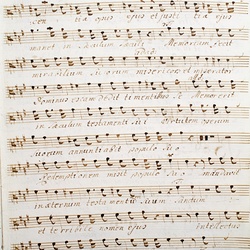 tia ejus et justitia ejus
manet in Saeculum Saeculi Memoriam fecit
mirabilium Suorum misericors et miserator
Dominus escam dedit timentibus Se Memor erit
in Saeculum testamenti Sui Virtutem operum
Suorum annuntiabit populo Suo
Redemptionem misit populo Suo mandavit
in aeternum testamentum Suum Sanctum
et terribile nomen ejus Intellectus